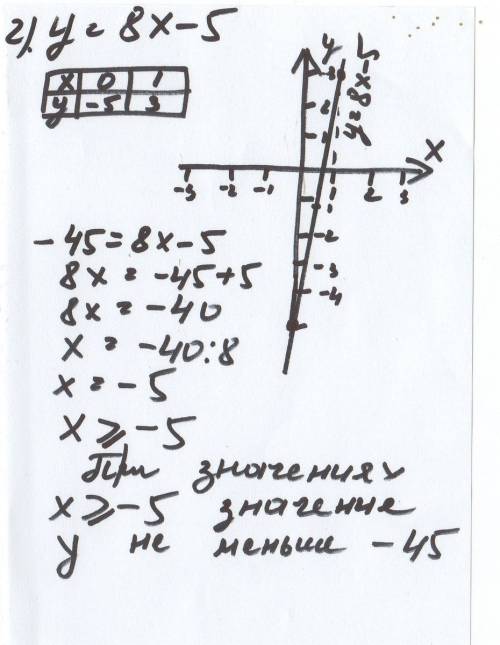 г). y = 8x - 5
x 0 1
y -5 3
y
3
2
1
y = 8x - 5
x
-3 -2 -1 1 2 3
-1
-2
-3
-4
-45 = 8x - 5
8x = -45 + 5
8x = -40
x = -40 : 8
x = -5
x ⩾ -5
При значениях
x ⩾ -5 значение
y не меньше -45